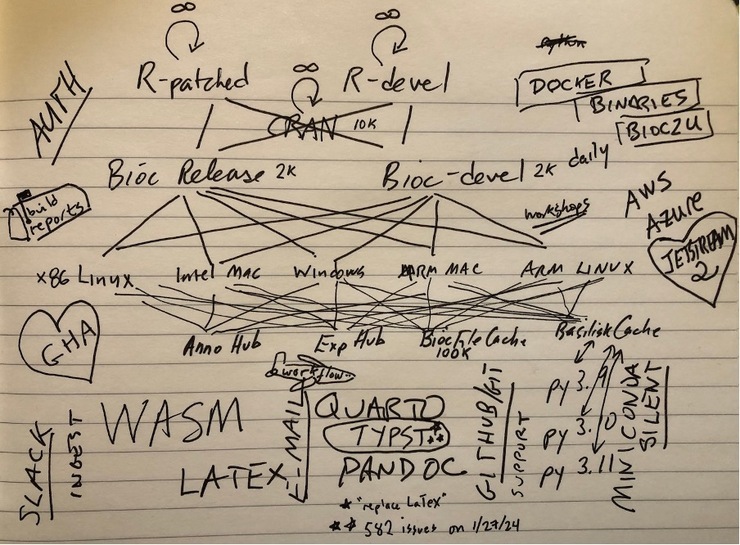 ∞ ∞
R-patched R-devel
∞
CRAN 10K
DOCKER
BINARIES
BIOC2U
AUTH
Bioc Release 2K Bioc-devel 2K daily
build
reports
workshops
AWS
Azure
JETSTREAM
2
x86 Linux Intel MAC Windows ARM MAC ARM LINUX
GHA
Anno Hub Exp Hub BiocFileCache BasiliskCache
100K
workflows
py 3.9
py 3.10
py 3.11
MINICONDA
SILENT
SLACK
INGEST
WASM
LATEX
E-MAIL
QUARTO
TYPST**
PANDOC
GITHUB/GIT
SUPPORT
* "replace LaTex"
** 582 issues on 1/27/24